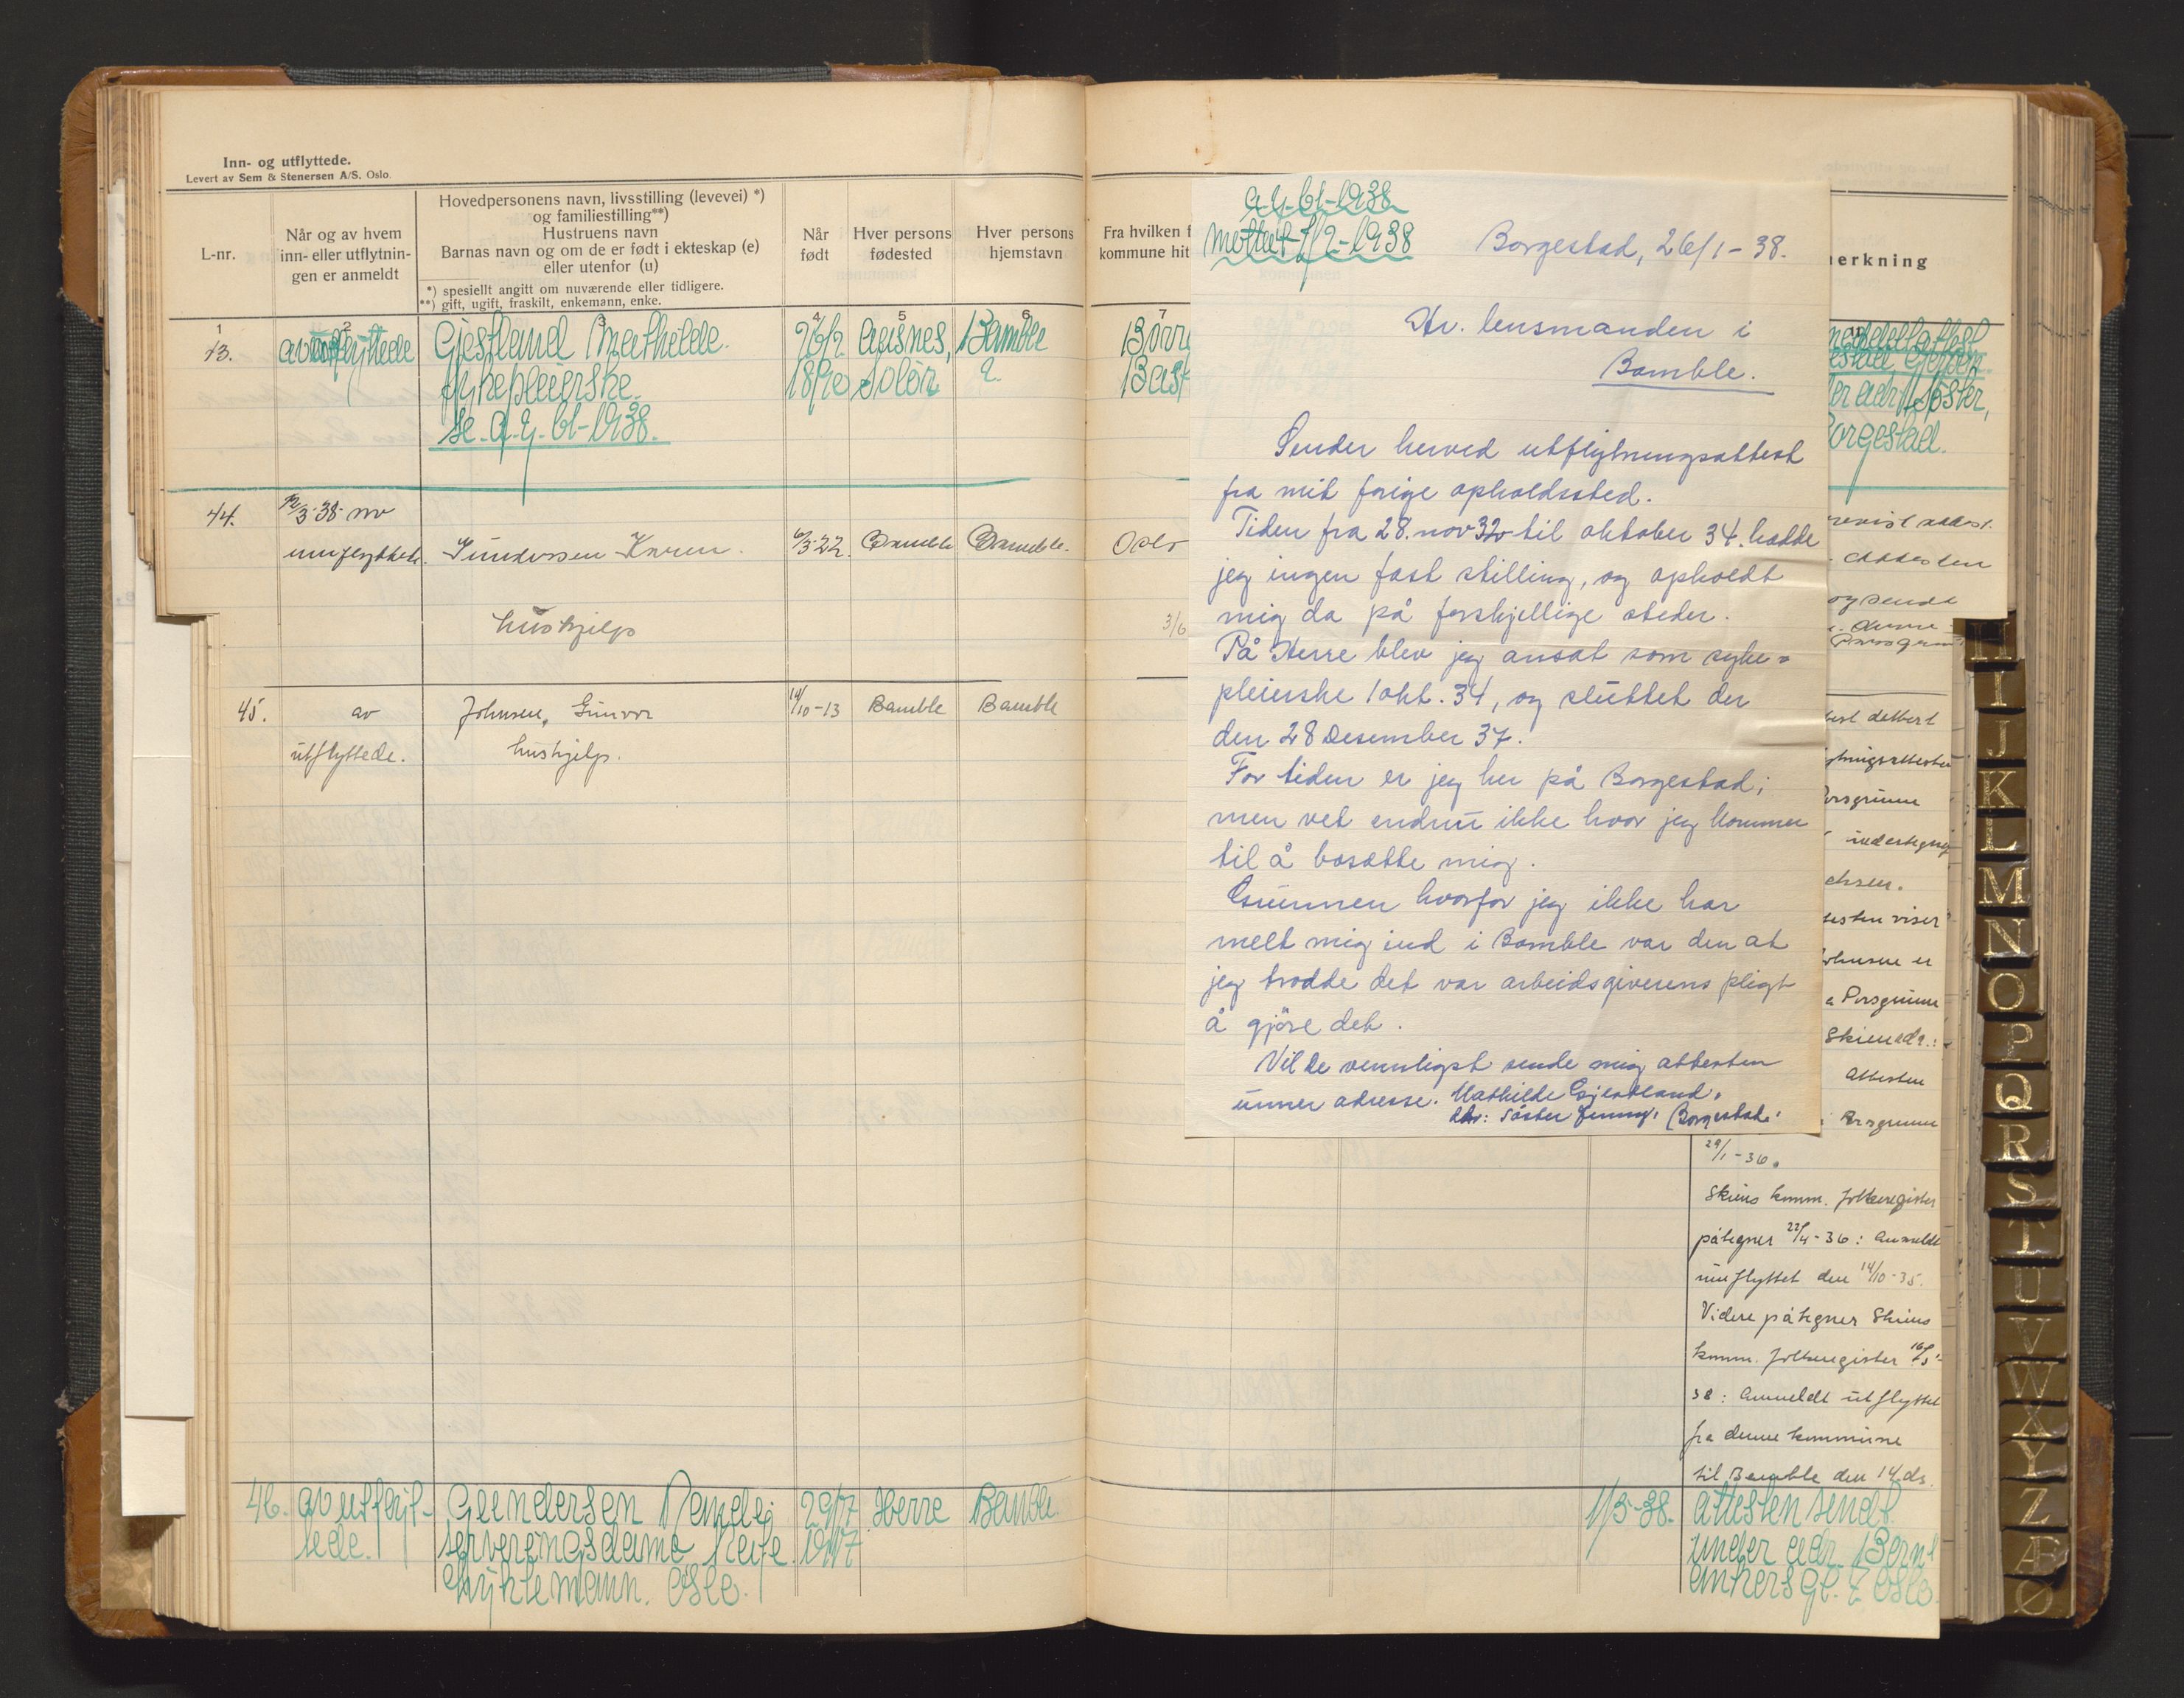 Inn- og utflyttede.
Levert av Sem & Stenersen A/S. Oslo.
L-nr.
Når og av hvem
inn- eller utflytnin-
gen er anmeldt
Hovedpersonens navn, livsstilling (levevei) *)
og familiestilling**)
Hustruens navn
Barnas navn og om de er født i ekteskap (e)
eller utenfor (u)
*) spesiellt angitt om nuværende eller tidligere.
**) gift, ugift, fraskilt, enkemann, enke.
Når
født
Hver persons
fødested
Hver persons
hjemstavn
1 2 3 4 5 6
43. av utflyttede Gjestland Mathilde. 26/2 Aasnes, Bamble
sykepleierske. 1890 Solør
se. a. y. 61-1938.
44. 12/3-38 av
innflyttede. Gundersen Karen. 6/3-22. Bamble Bamble.
hushjelp
45. av Johnsen, Gunvor 14/10-13 Bamble Bamble
utflyttede. hushjelp.
46. av utflyt- Gundersen 29/7 Herre Bamble
tede. serveringsdame Kafe 1917
Oslo.
Fra hvilken f
kommune hit
7
Oslo
3/6
a. y. 61-1938
Mottatt 1/2-1938
Borgestad, 26/1-38.
Hr. lensmanden i
Bamble.
Sender herved utflytningsattest
fra mit forige opholdssted.
Tiden fra 28. nov 32 til oktober 34. hadde
jeg ingen fast stilling, og opholdt
mig da på forskjellige steder.
På Herre blev jeg ansat som syke-
pleierske 1 okt. 34, og sluttet der
den 28 Desember 37.
For tiden er jeg her på Borgestad;
men vet endnu ikke hvor jeg kommer
til å bosætte mig.
Grunnen hvorfor jeg ikke har
melt mig ind i Bamble var den at
jeg trodde det var arbeidsgiverens pligt
å gjöre det.
Vil De vennligst sende mig attesten
unner adresse. Mathilde Gjestland.
Adr: Söster Jenny, Borgestad.
erkning
Söster,
Borgestad.
attesten
og sendt
ytningsattesten
Porsgrunn
sten viser
Johnsen er
Porsgrunn
Skien adr.:
Attesten
Porsgrunn
29/1-36.
Skiens komm. folkeregister
påtegner 22/4-36: Anmeldt
innflyttet den 14/10-35.
Videre påtegner Skiens
komm. folkeregister 16/3-
38: Anmeldt utflyttet
fra denne kommune
til Bamble den 14. ds.
1/3-38. attesten sendt
under adr. Bernt
Ankers gt. 7 Oslo.
H
I
J
K
L
M
N
O
P
Q
R
S
T
U
V
W
X
Y
Z
Æ
Ø